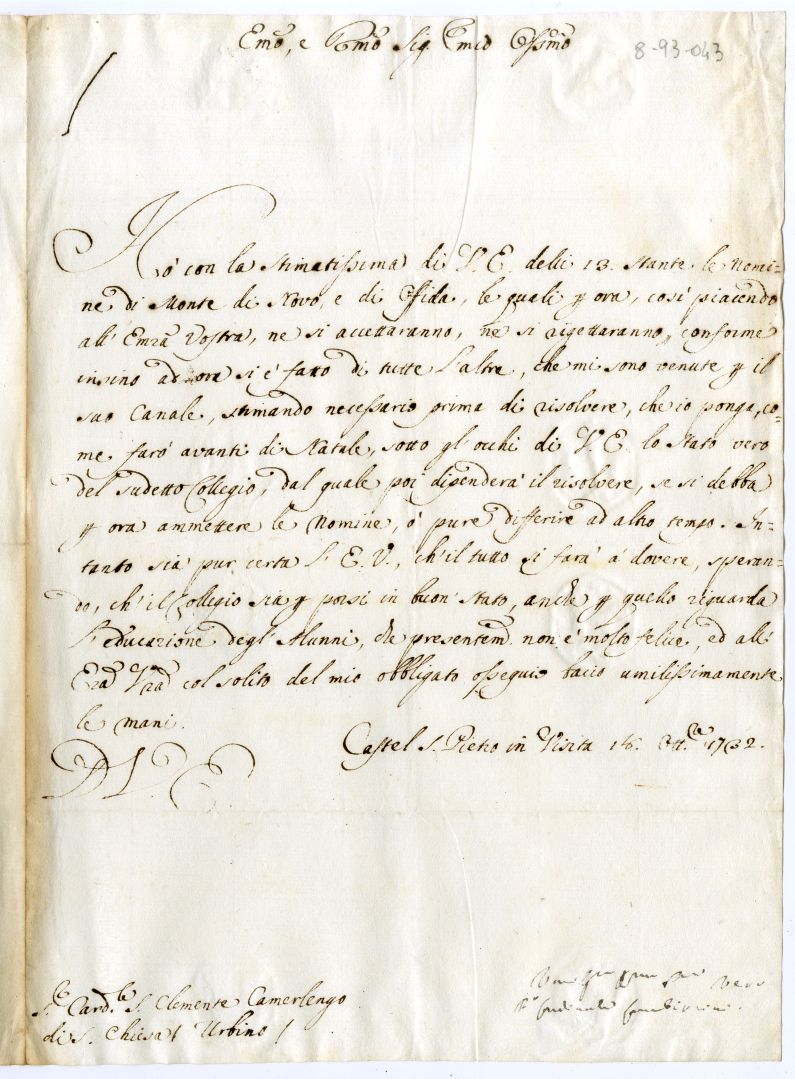 Emo, e Rmo Sig. mio Ossmo
8-93-043
Hò con la stimatissima di V. E. delli 13. stante le Nomi=
ne di Monte di Novo, e di Offida, le quali p ora, così piacendo
all' Emza Vostra, ne si accettaranno, ne si rigettaranno, conforme
insino ad ora si è fatto di tutte l'altre, che mi sono venute p il
suo Canale, stimando necessario prima di risolvere, che io ponga, co=
me farò avanti di Natale, sotto gl'occhi di V. E. lo Stato vero
del sudetto Collegio, dal quale poi dipenderà il risolvere, se si debba
p ora ammettere le Nomine, ò pure differire ad altro tempo. In=
tanto sia pur certa l' E. V., ch'il tutto si farà à dovere, speran=
do, ch'il Collegio sia p porsi in buon' stato, anche p quello riguarda
l'educazione degl'Alunni, che presentem. non è molto felice, ed all'
Eza Vra col solito del mio obbligato ossequio bacio umilissimamente
le mani.
Castel S. Pietro in Visita 16. Ott.bre 1732.
D V E
S.r Card.le S. Clemente Camerlengo
di S. Chiesa Urbino